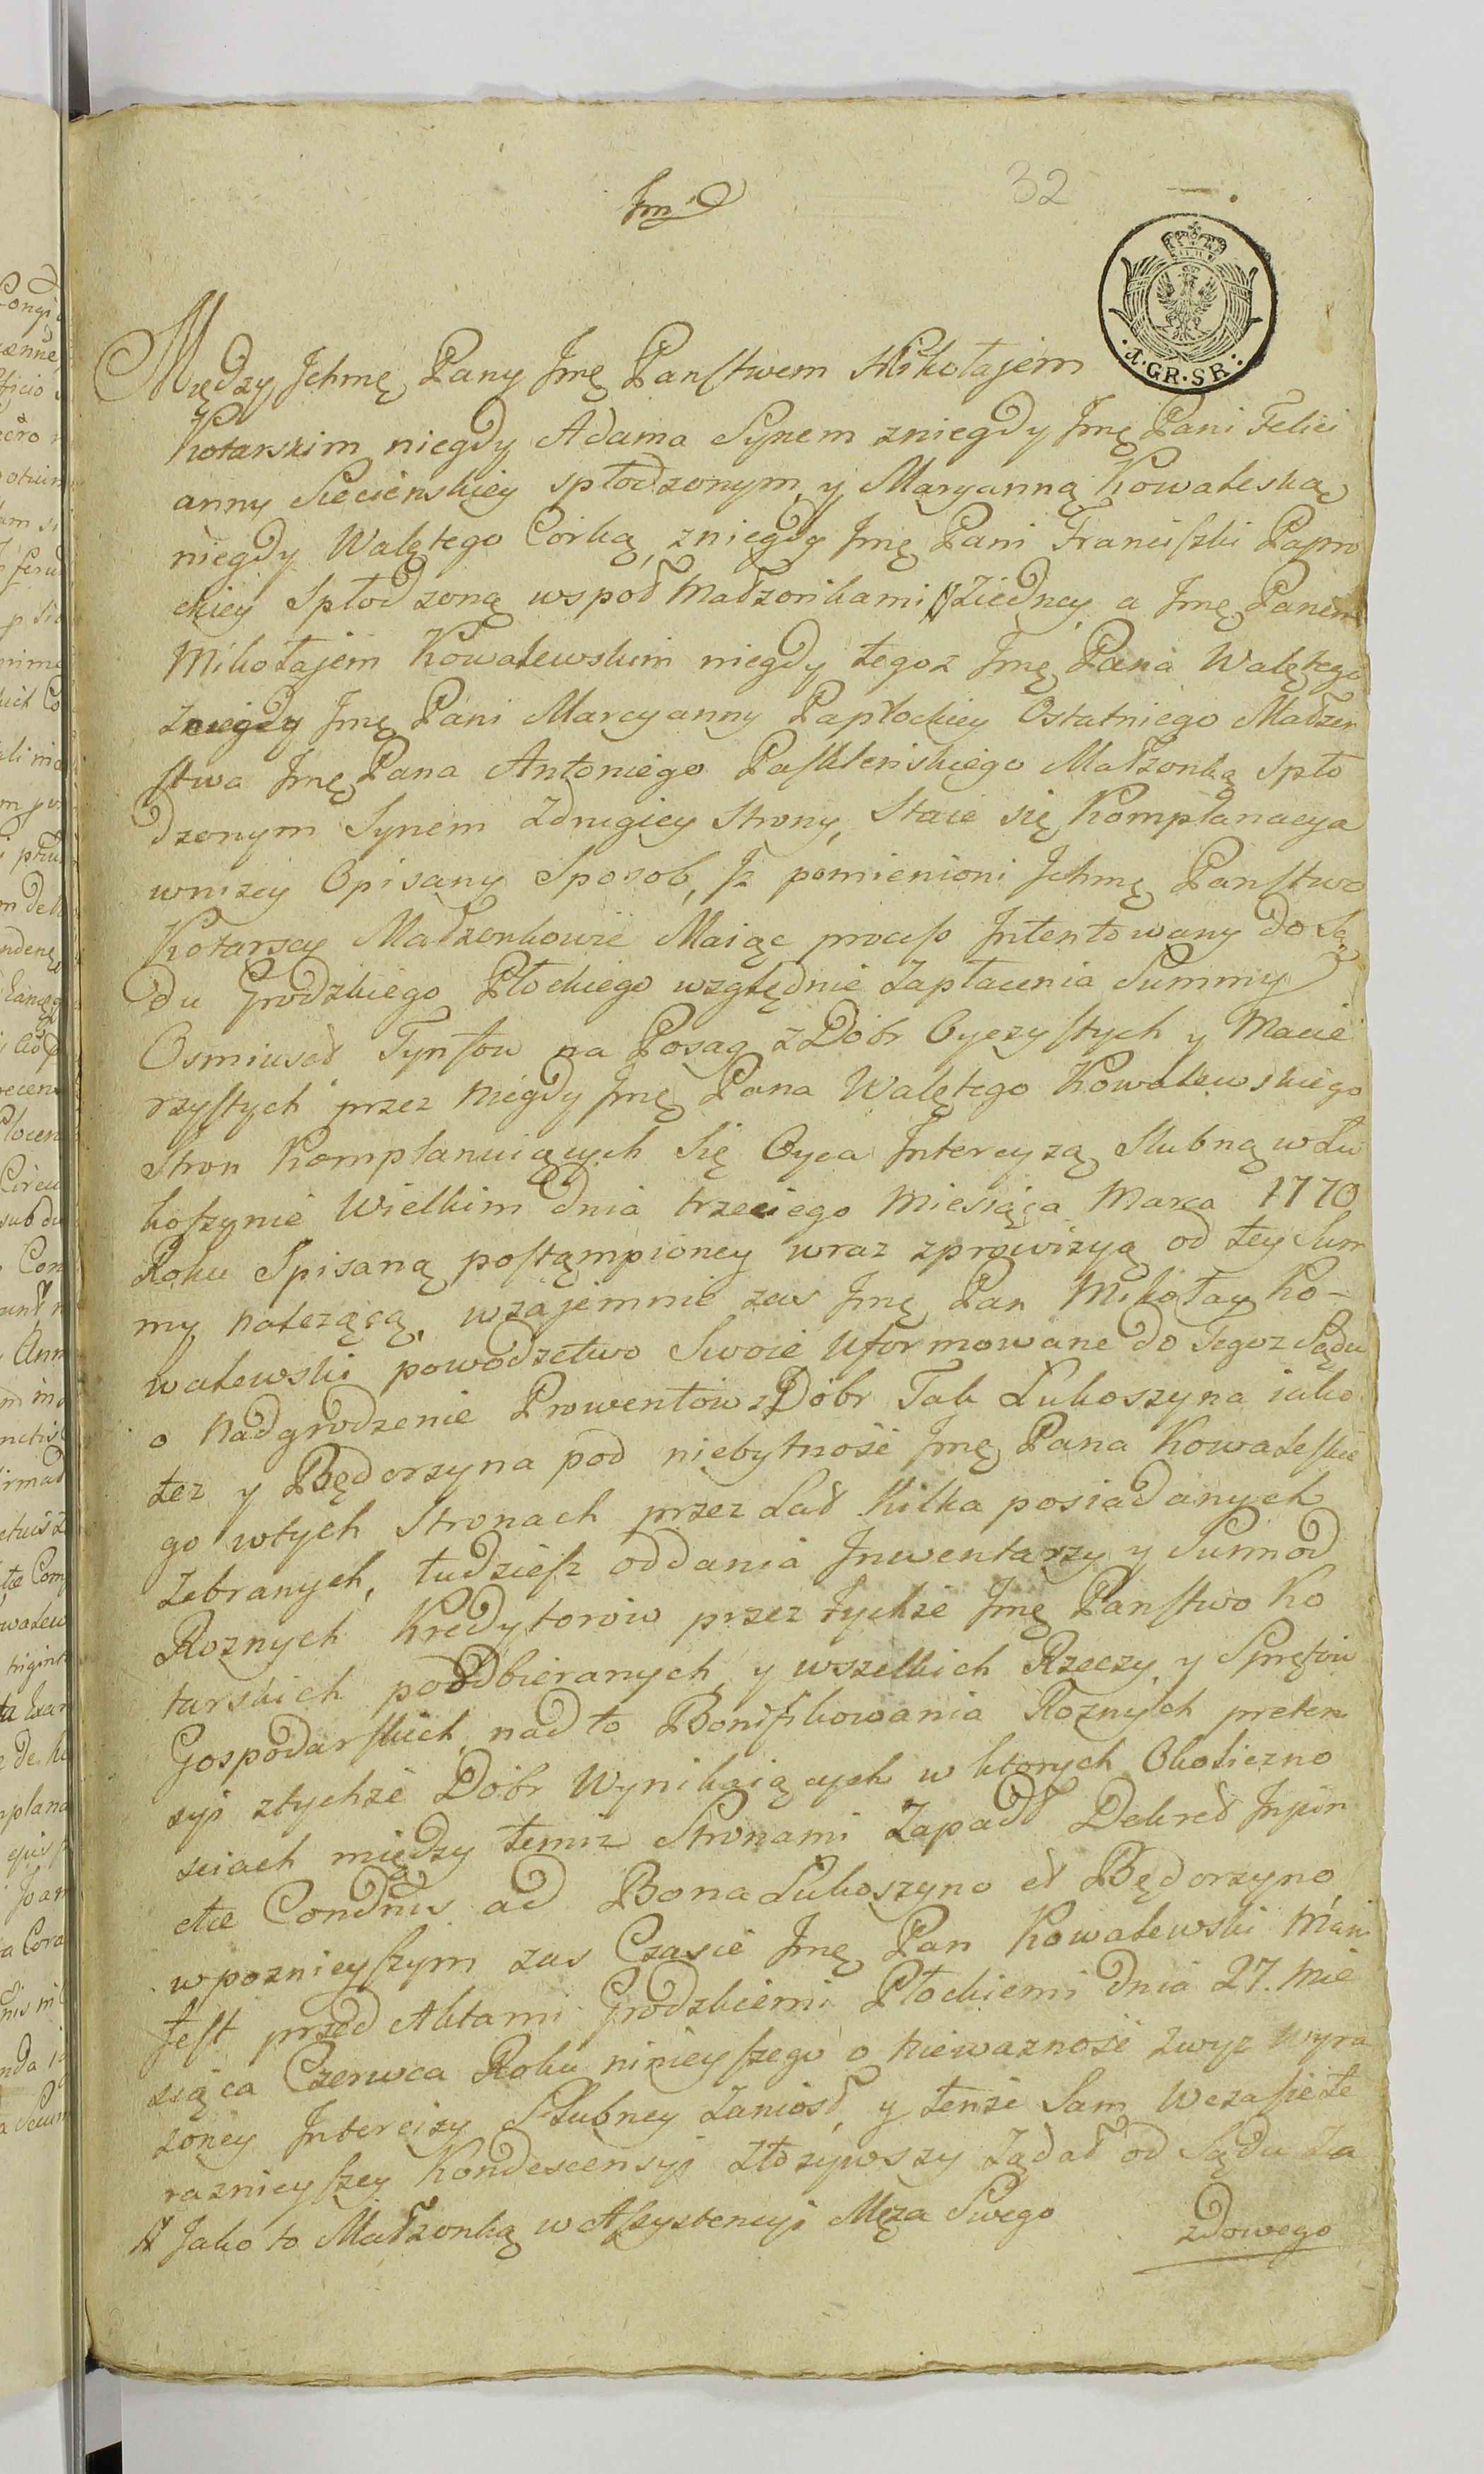 32
·1·GR·SR·
Między Jchmę Pany Jmę Panſtwem Mikołajem
Kotarskim niegdy Adama Synem zniegdy Jmę Pani Felici
anny Siecienskiey spłodzonym, y Maryanną Kowaleską
niegdy Walętego Corką, zniegdy Jmę Pani Franciſzki Papro
ckiey Spłodzoną wspoł Małzonkami # zjedney a Jmę Panem
Mikołajem Kowalewskim niegdy tegoz Jmę Pana Walętego
zniegdy Jmę Pani Marcyanny Papłockiey Ostatniego Małzen
ſtwa Jmę Pana Antoniego Paſkleńskiego Małzonką Spło
dzonym Synem zdrugiey Strony, Staie się Komplanacya
wnizey Opisany Sposob, Jz pomienioni Jchmę Panſtwo
Kotarscy Małzonkowie Maiąc proceſs Jntentowany do Są
du Grodzkiego Płockiego względnie Zapłacenia Summy
Osmiuset Tynfow na Posag z Dobr Oyczyſtych y Macie
rzyſtych przez niegdy Jmę Pana Walętego Kowalewskiego
Stron Komplanuiących Się Oyca Jntercyzą Slubną w Lu
koſzynie Wielkim dnia trzeciego Miesiąca Marca 1770
Roku Spisaną poſtąmpioney wraz zprowizyą od tey Sum
my nalezącą, wzajemnie zas Jmę Pan Mikołay Ko-
walewski powodztwo Swoie Uformowane do Tegoz Sądu
o Nadgrodzenie Prowentow z Dobr Tak Lukoszyna iako
tez y Będorzyna pod niebytnosć Jmę Pana Kowaleſkie
go wtych Stronach przez Lat kilka posiadanych
Zebranych, tudzieſz oddania Jnwentarzy y Summ od
Roznych Kredytorow przez tychze Jmę Panſtwo Ko
tarskich poodbieranych, y wszelkich Rzeczy y Sprętow
Goſpodarſkich, nad to Bonifikowania Roznych preten
syi ztychze Dobr Wynikaiących w ktorych Okoliczno
sciach między temiz Stronami Zapadł Dekret Injun
ctæ Condnis ad Bona Lukoszyno et Będorzyno,
wpoznieyſzym zas Czasie Jmę Pan Kowalewski Mani
feſt przed Aktami Grodzkiemi Płockiemi dnia 27. Mie
siąca Czerwca Roku ninieyſzego o niewaznosć zwyz wyra
zoney Jntercizy Slubney zaniosł, y tenze Sam Wczaſie te
raznieyſzey Kondescensyi złozywszy Ządał od Sądu Za
# Jako to Małzonką w Aſzystencyi Męza Swego
zdowego